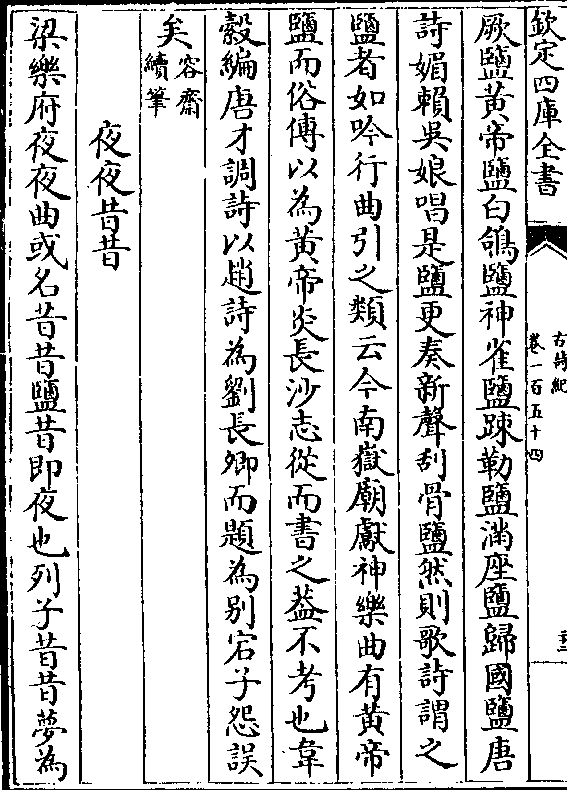 欽定四庫全書
古詩紀
卷一百五十四
厥鹽黃帝鹽白鴿鹽神雀鹽踈勒鹽滿座鹽歸國鹽唐
詩媚賴吳娘唱是鹽更奏新聲刮骨鹽然則歌詩謂之
鹽者如吟行曲引之類云今南嶽廟獻神樂曲有黃帝
鹽而俗傳以為黃帝炎長沙志從而書之葢不考也韋
縠編唐才調詩以趙詩為劉長卿而題為别宕子怨誤
矣容齋續筆
夜夜昔昔
梁樂府夜夜曲或名昔昔鹽昔即夜也列子昔昔夢為